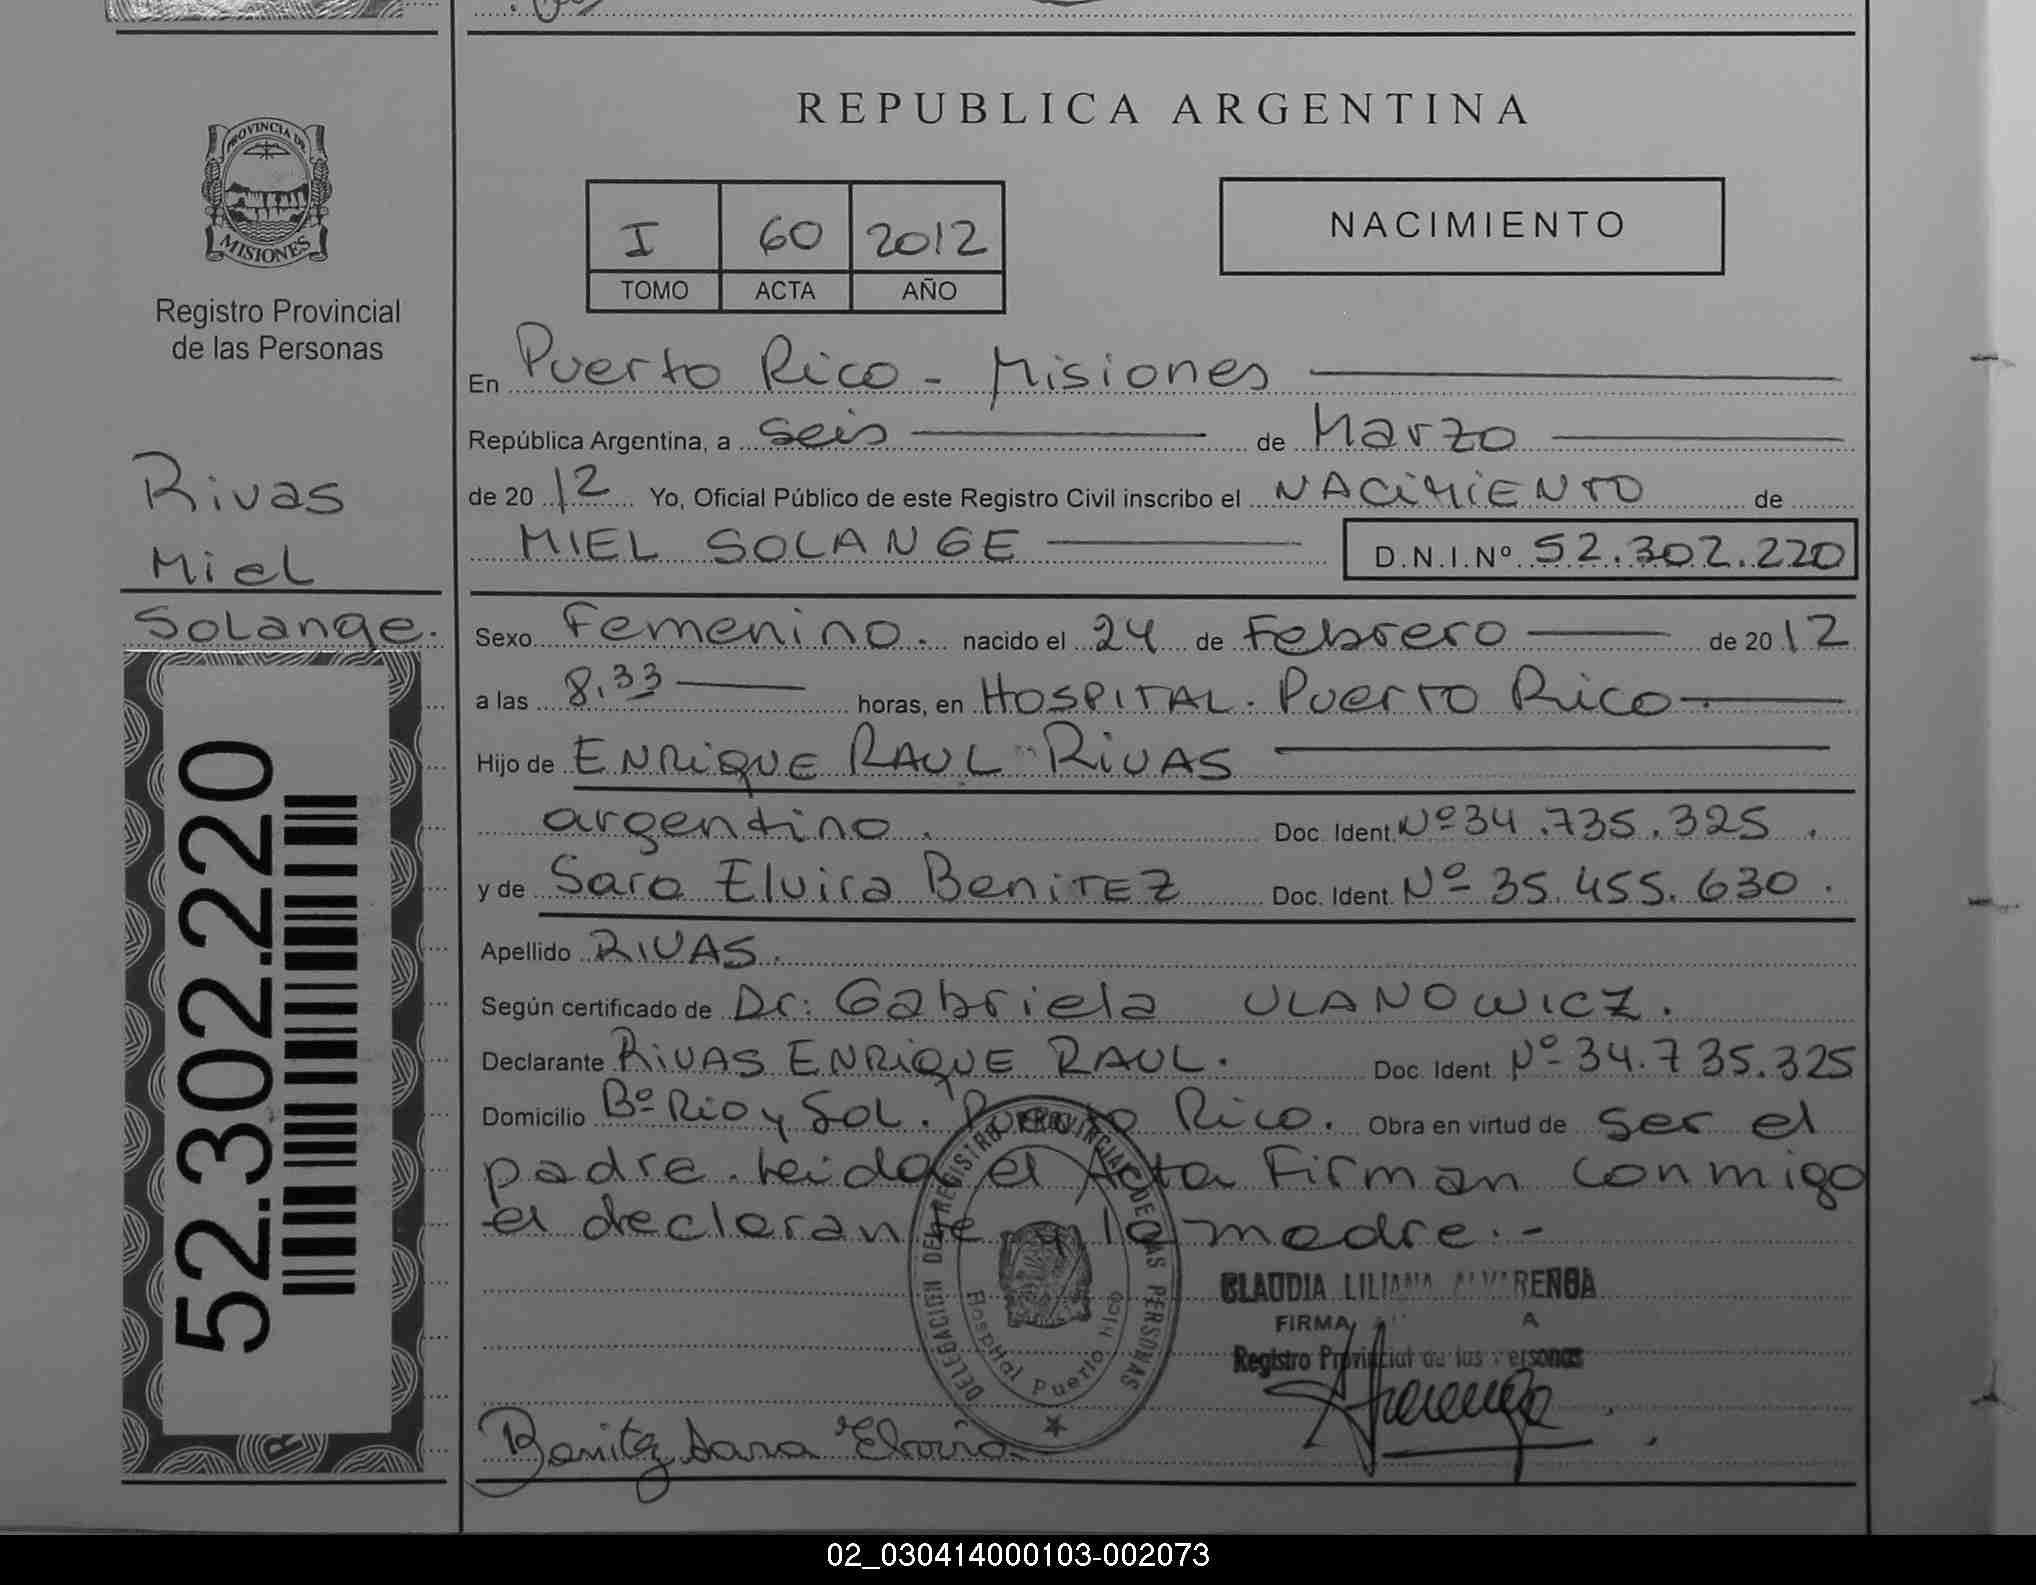 REPUBLICA ARGENTINA
PROVINCIA DE
MISIONES
Registro Provincial
de las Personas
I 60 2012
TOMO ACTA AÑO
NACIMIENTO
Rivas
Miel
Solange.
52.302.220
En Puerto Rico - Misiones
República Argentina, a seis de Marzo
de 2012 Yo, Oficial Público de este Registro Civil inscribo el NACIMIENTO de
MIEL SOLANGE D.N.I.Nº 52.302.220
Sexo Femenino. nacido el 24 de Febrero de 2012
a las 8,33 horas, en HOSPITAL. Puerto Rico
Hijo de ENRIQUE RAUL RIVAS
argentino. Doc. Ident. Nº 34.735.325.
y de Sara Elvira BENITEZ Doc. Ident. Nº 35.455.630.
Apellido RIVAS.
Según certificado de Dr: Gabriela ULANOWICZ.
Declarante RIVAS ENRIQUE RAUL. Doc. Ident. Nº 34.735.325
Domicilio Bº Rio y Sol. Puerto Rico. Obra en virtud de ser el
padre. Leida el Acta Firman conmigo
el declarante y la madre.-
DELEGACION DEL REGISTRO PROVINCIAL DE LAS PERSONAS
Hospital Puerto Rico
CLAUDIA LILIANA ALVARENGA
FIRMA
Registro Provincial de las Personas
Benitez Sara Elvira
02_030414000103-002073